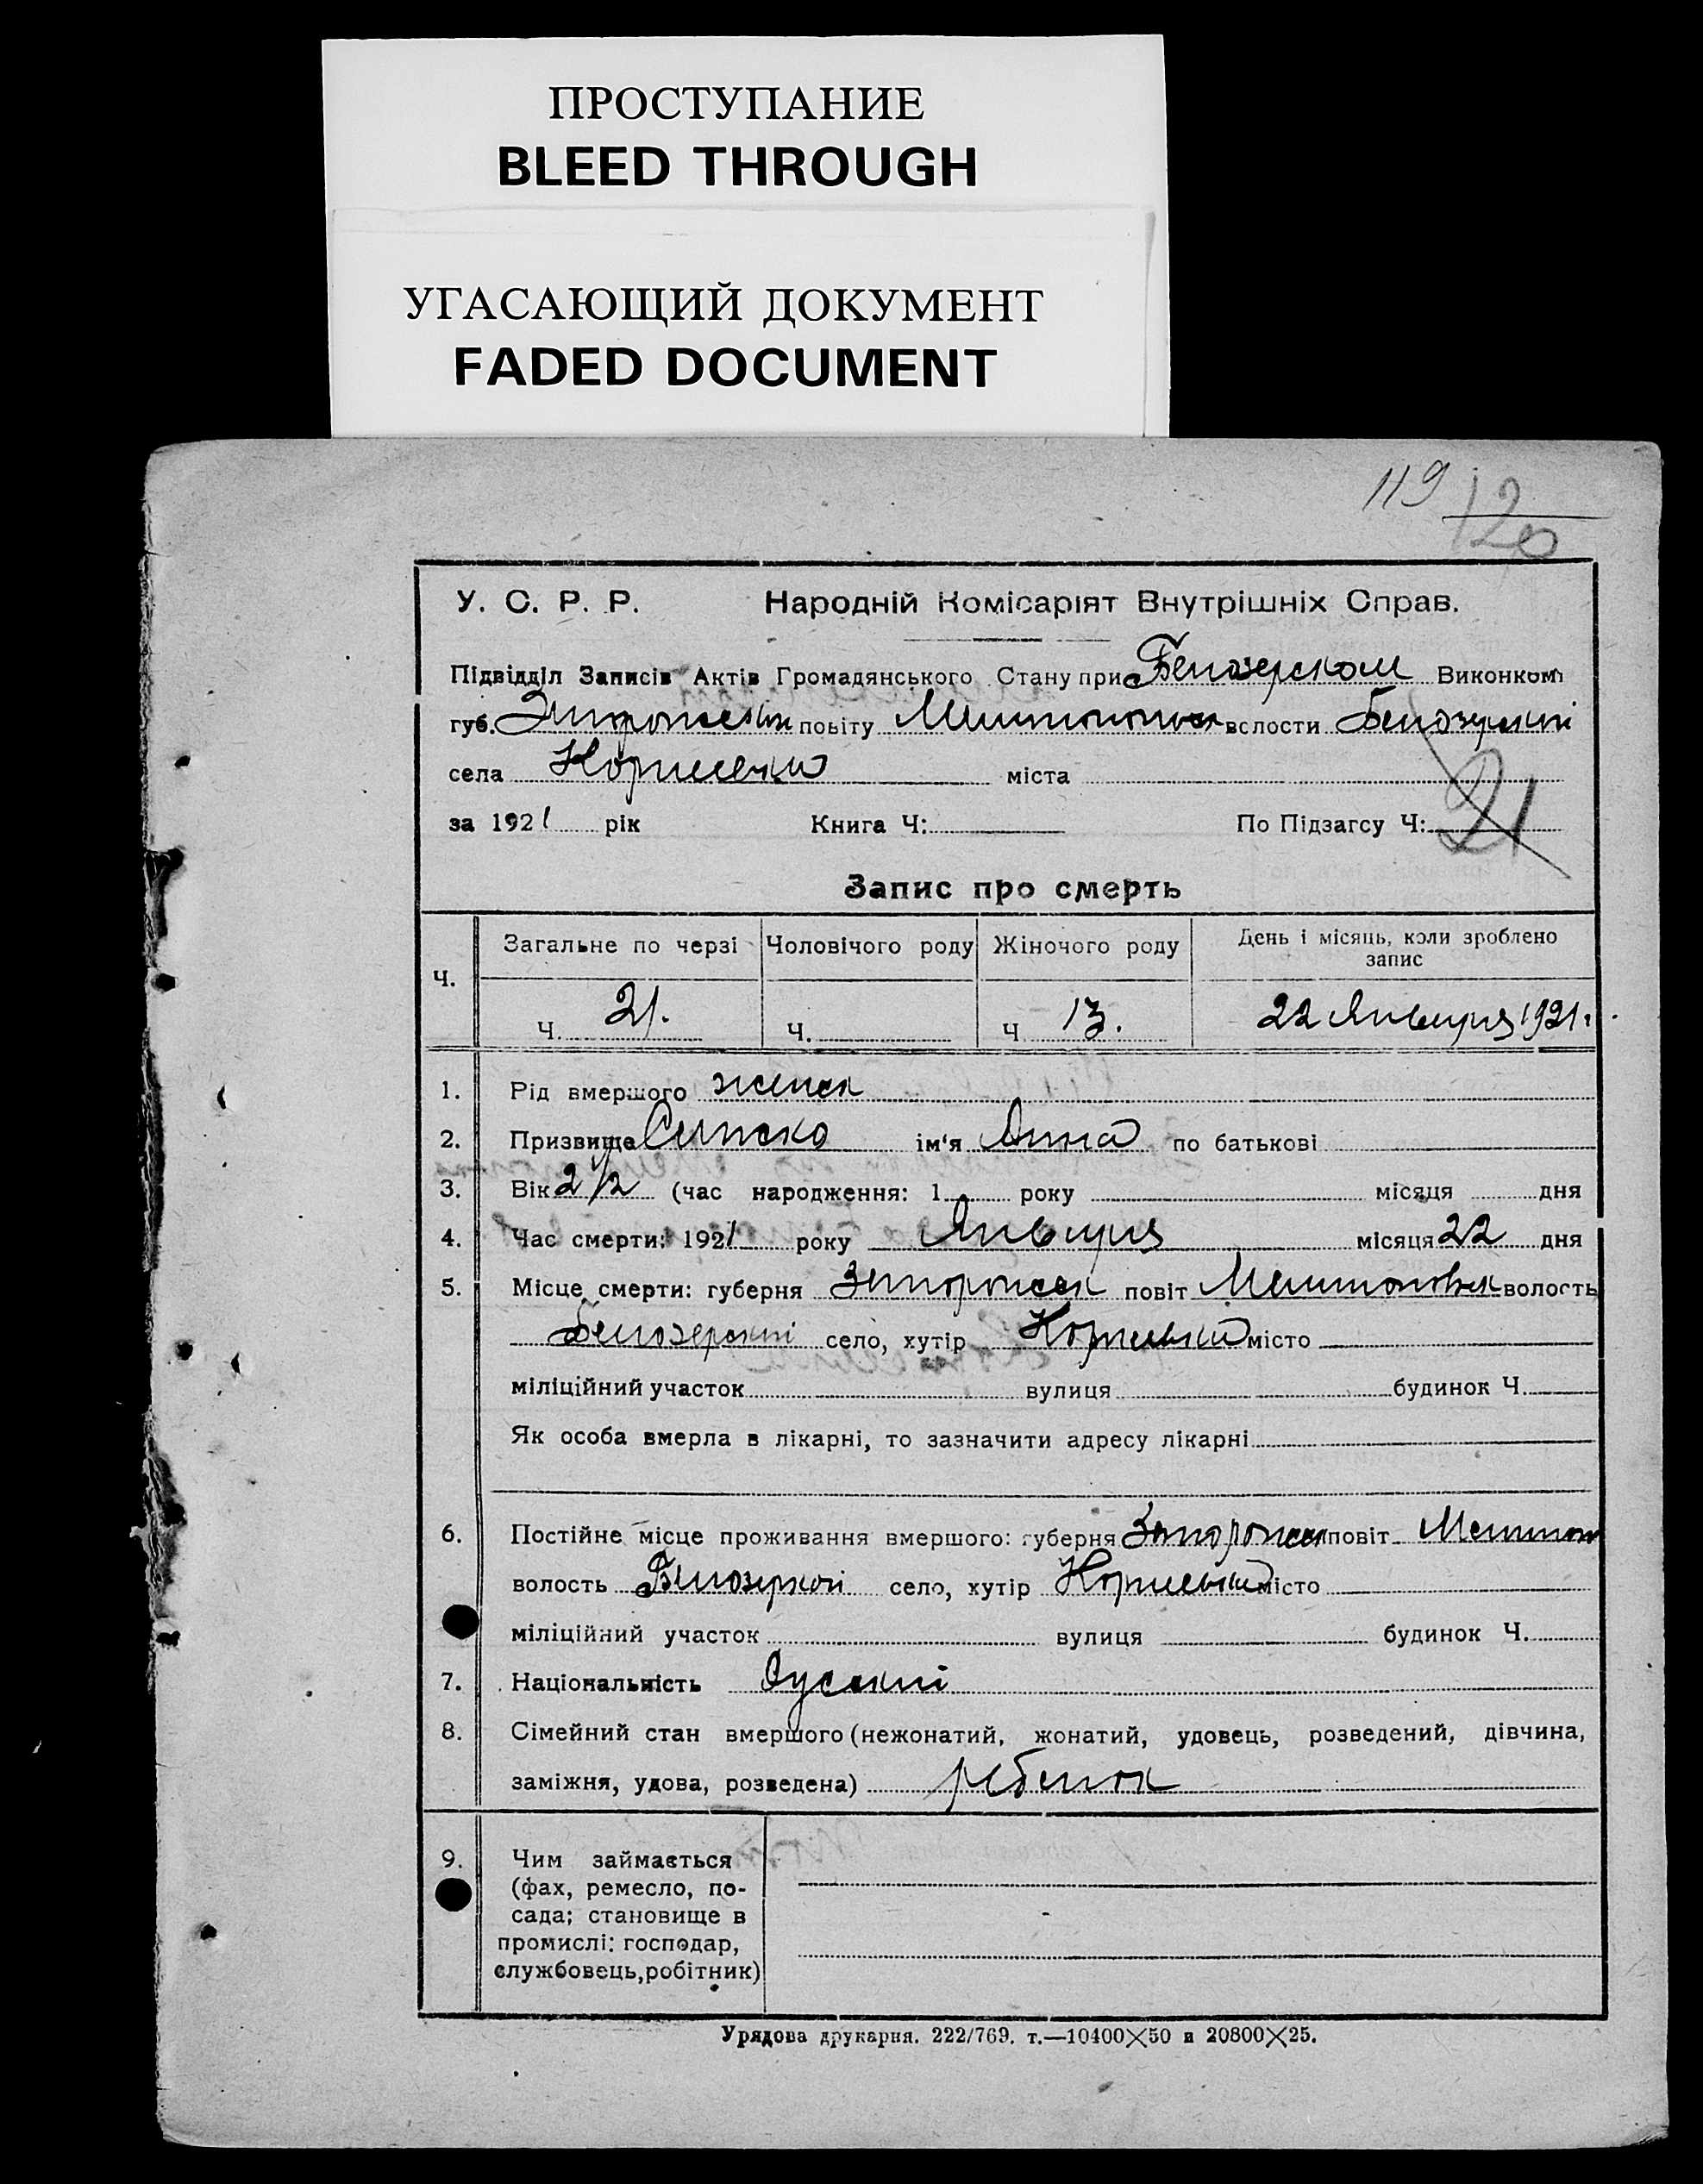 ПРОСТУПАНИЕ
BLEED THROUGH
УГАСАЮЩИЙ ДОКУМЕНТ
FADED DOCUMENT
119 120
У. С. Р. Р. Народній Комісаріят Внутрішніх Справ.
Підвідділ Записів Актів Громадянського Стану при Белозерском Виконкомі
губ. повіту волости Белозерской
села міста
за 1921 рік Книга Ч: По Підзагсу Ч: 21
Запис про смерть
Ч. Загальне по черзі Чоловічого роду Жіночого роду День і місяць, коли зроблено
запис
Ч. 21. Ч. Ч 13. 22 Января 1921 г.
1. Рід вмершого женск
2. Призвище ім'я Анна по батькові
3. Вік 2 1/2 (час народження: 1 року місяця дня
4. Час смерти: 1921 року Января місяця 22 дня
5. Місце смерти: губерня Запорожск повіт волость
Белозерской село, хутір місто
міліційний участок вулиця будинок Ч.
Як особа вмерла в лікарні, то зазначити адресу лікарні
6. Постійне місце проживання вмершого: губерня Запорожск повіт
волость село, хутір місто
міліційний участок вулиця будинок Ч.
7. Національність Руский
8. Сімейний стан вмершого (нежонатий, жонатий, удовець, розведений, дівчина,
заміжня, удова, розведена) ребенок
9. Чим займається
(фах, ремесло, по-
сада; становище в
промислі: господар,
службовець, робітник)
Урядова друкарня. 222/769. т.—10400✕50 и 20800✕25.